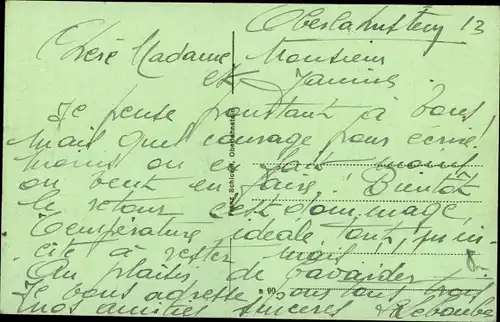 Oberlahnstein 13
Chère Madame, Monsieur
et Jannine.
Je pense pourtant à vous,
mais quel courage pour écrire!
moins on en fait moins
on veut en faire! Bientôt
le retour c'est dommage,
Température idéale, tout, qu'in-
cite à rester mais
Au plaisir de bavarder
Je vous adresse tous
nos amitiés sincères
Franz Schickel, Oberlahnstein
a 90